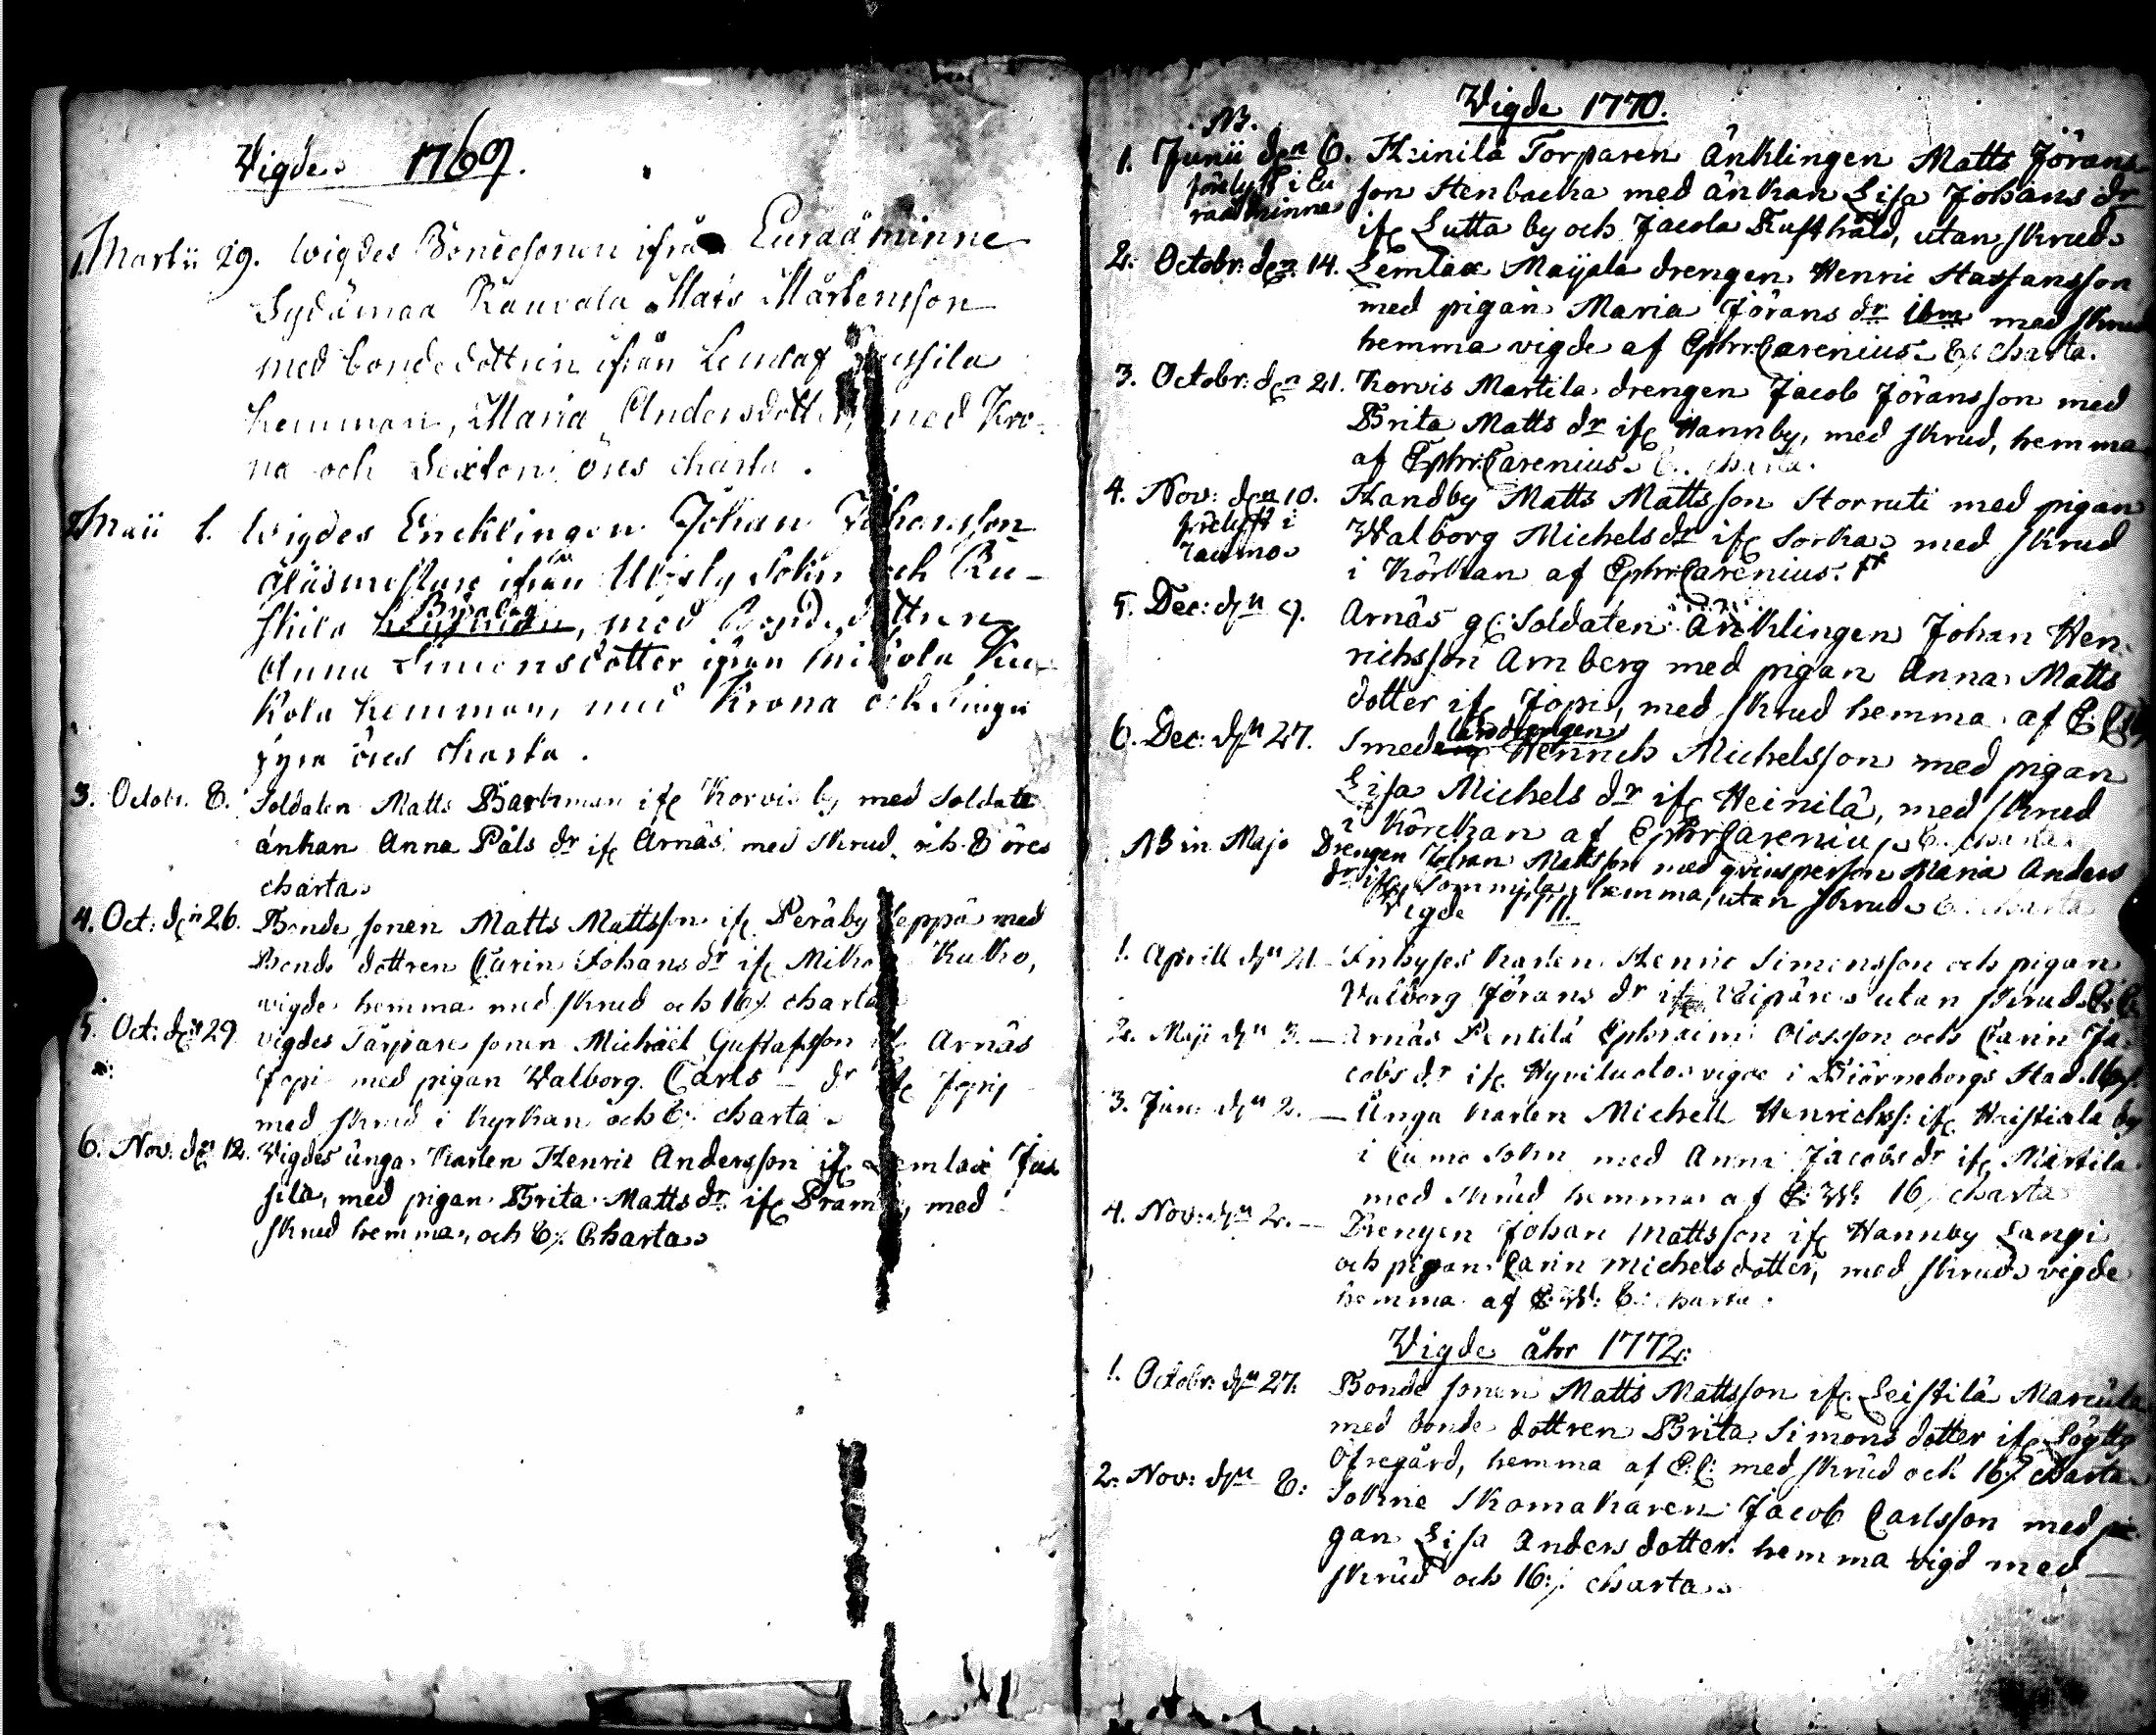 Vigde 1769.
1. Martii 29. Wigdes Bondesonen ifrån Euraåminne
Sydämaa Raurala Mats Mårtensson
med bondedottren ifrån Lemlax Jussila
hemman, Maria Andersdotter, med Kro-
na och Sexton öres charta.
2. Maii 1. Wigdes Encklingen Johan Johansson
Glasmestare ifrån Ulfsby Sokn och Ru-
skila Byalag, med Bondedottren
Anna Simonsdotter ifrån Mikola Ku
kola hemman, med Krona och tiugu
fyra öres charta.
3. Octobr. 8. Soldaten Matts Barkman ifr Korvis by med Soldate
änkan Anna Påls dr ifr Arnäs med skrud, och 8 öres
charta
4. Oct: dn 26. Bonde sonen Matts Mattsson ifr Peräby Seppä med
Bonde dottren Carin Johans dr ifr Kukko,
vigde hemma med skrud och 16 charta
5. Oct: dn 29 vigdes Tårpare sonen Michäel Gustafsson ifr Arnäs
Jopi med pigan Walborg Carls dr ifr Jopi,
med skrud i kyrkan och 8 charta
6. Nov: dn 12. Vigdes unga Karlen Henric Andersson ifr Lemlax Jus
sila, med pigan Brita Matts dr ifr med
skrud hemma, och 8 Charta
Vigde 1770.
NB.
1. Junii den 6. Heinilä Torparen Änklingen Matts Jörans
förelyst i Eu son Stenbacka med änkan Lisa Johans dr
raåminne ifr Lutta by och Jacola Rusthåld, utan skrud
2. Octobr: den 14. Lemlax Maÿala drengen Henric Staffansson
med pigan Maria Jörans dr ibm med skrud
hemma vigde af Ephr: Carenius. 8 charta.
3. Octobr: dn 21. Korvis Martila drengen Jacob Jöransson med
Brita Matts dr ifr Hannby, med skrud, hemma
af Ephr: Carenius. 8 charta.
4. Nov: den 10. Handby Matts Mattsson Storruti med pigan
förelyst i Walborg Michels dr ifr Sorka med skrud
raumo i Körkian af Ephr: Carenius.
5. Dec: dn 9. Arnäs Soldaten Änklingen Johan Hen
richsson Arnberg med pigan Anna Matts
dotter ifr Jopi, med skrud hemma af E: C:
6. Dec: dn 27. Smeden Henrich Michelsson med pigan
Lisa Michels dr ifr Heinilä, med skrud
i Körckian af Ephr Carenius, 8 charta
NB in Majo Drengen Johan Mattsson med qvinsperson Maria Anders
dr ifr hemma, utan skrud 8 charta
Vigde
1. Aprill dn 21. Inhyses Karlen Henric Simonsson och pigan
Valborg Jörans dr ifr utan skrud. E: C:
2. Maji dn 3. Arnäs Pentilä Ephraim Olosson och Carin Ja
cobs dr ifr Hyviluoto vigde i Biörneborgs Stad. 16
3. Jun: dn 2. Unga Karlen Michell Henrichs: ifr by
i Cumo Sokn med Anna Jacobs dr ifr Martila
med skrud hemma af E: 16 charta
4. Nov: dn 2. Drengen Johan Mattsson ifr Hannby Langi
och pigan Carin Michels dotter, med skrud vigde
hemma af E: 8 charta.
Vigde åhr 1772:
1. Octobr: dn 27. Bonde sonen Matts Mattsson ifr Leistilä Marcula
med bonde dottren Brita Simons dotter ifr Söyttö
Öfregård, hemma af E: C: med skrud och 16 charta
2. Nov: dn 8: Sokne Skomakaren Jacob Carlsson med pi
gan Lisa Anders dotter hemma vigd med
skrud och 16 charta